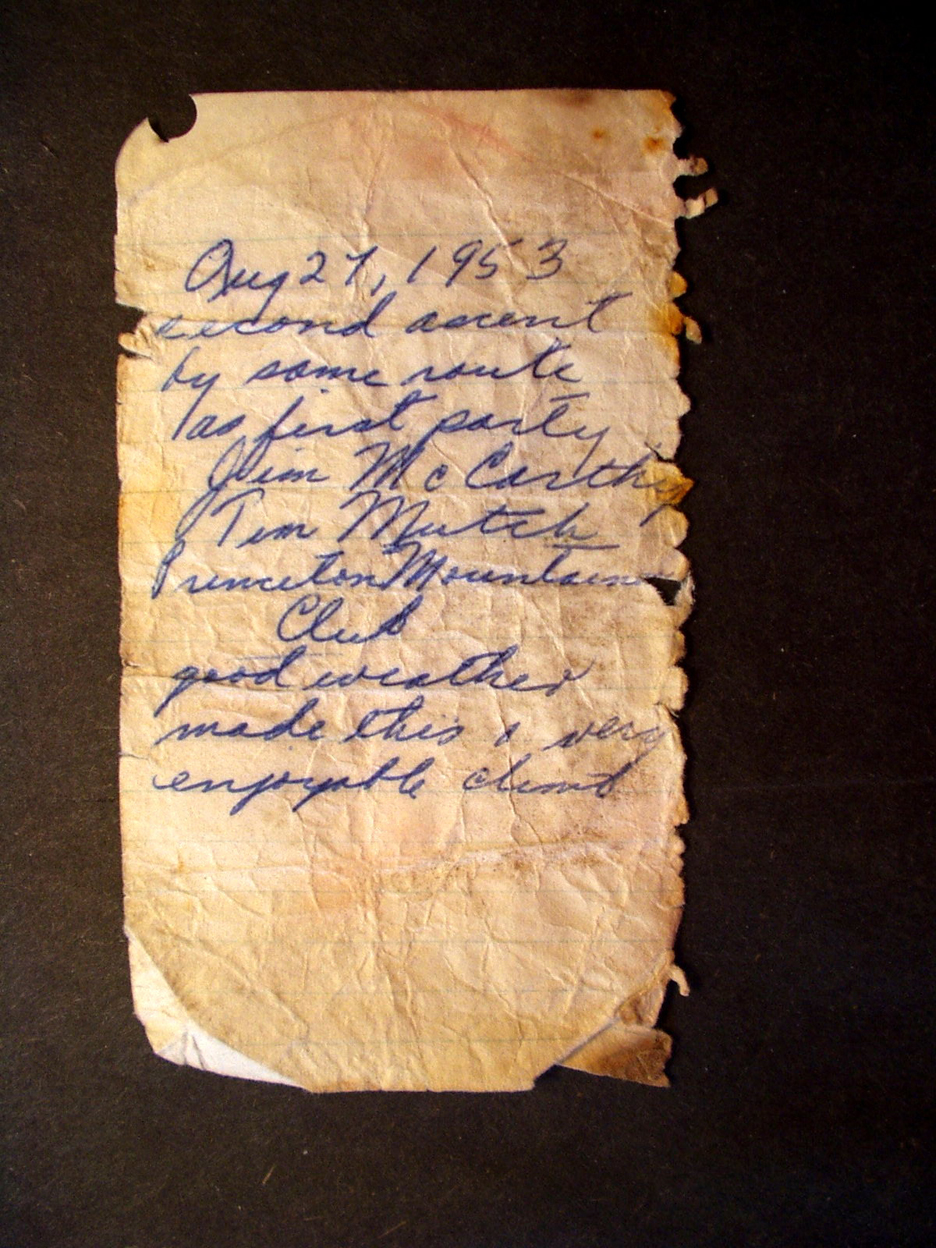 Aug 27, 1953
second ascent
by same route
as first party
Jim McCarthy
Tim Mutch
Princeton Mountain
Club
good weather
made this a very
enjoyable climb